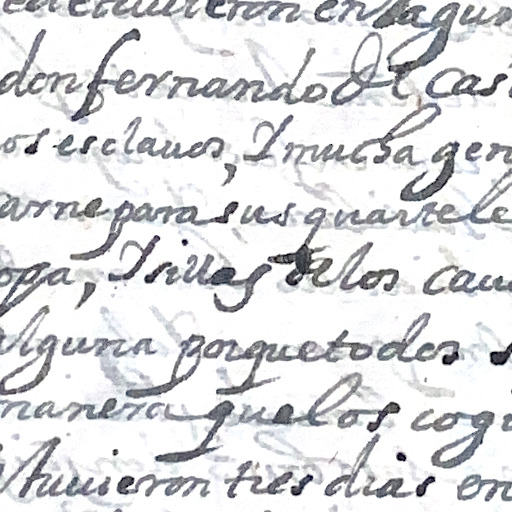 en lagun
don fernando de cas
os esclauos, I mucha gen
arne para sus quartele
opa, I sillas de los caua
alguna porque todos s
manera que los cogi
stuuieron tres dias en